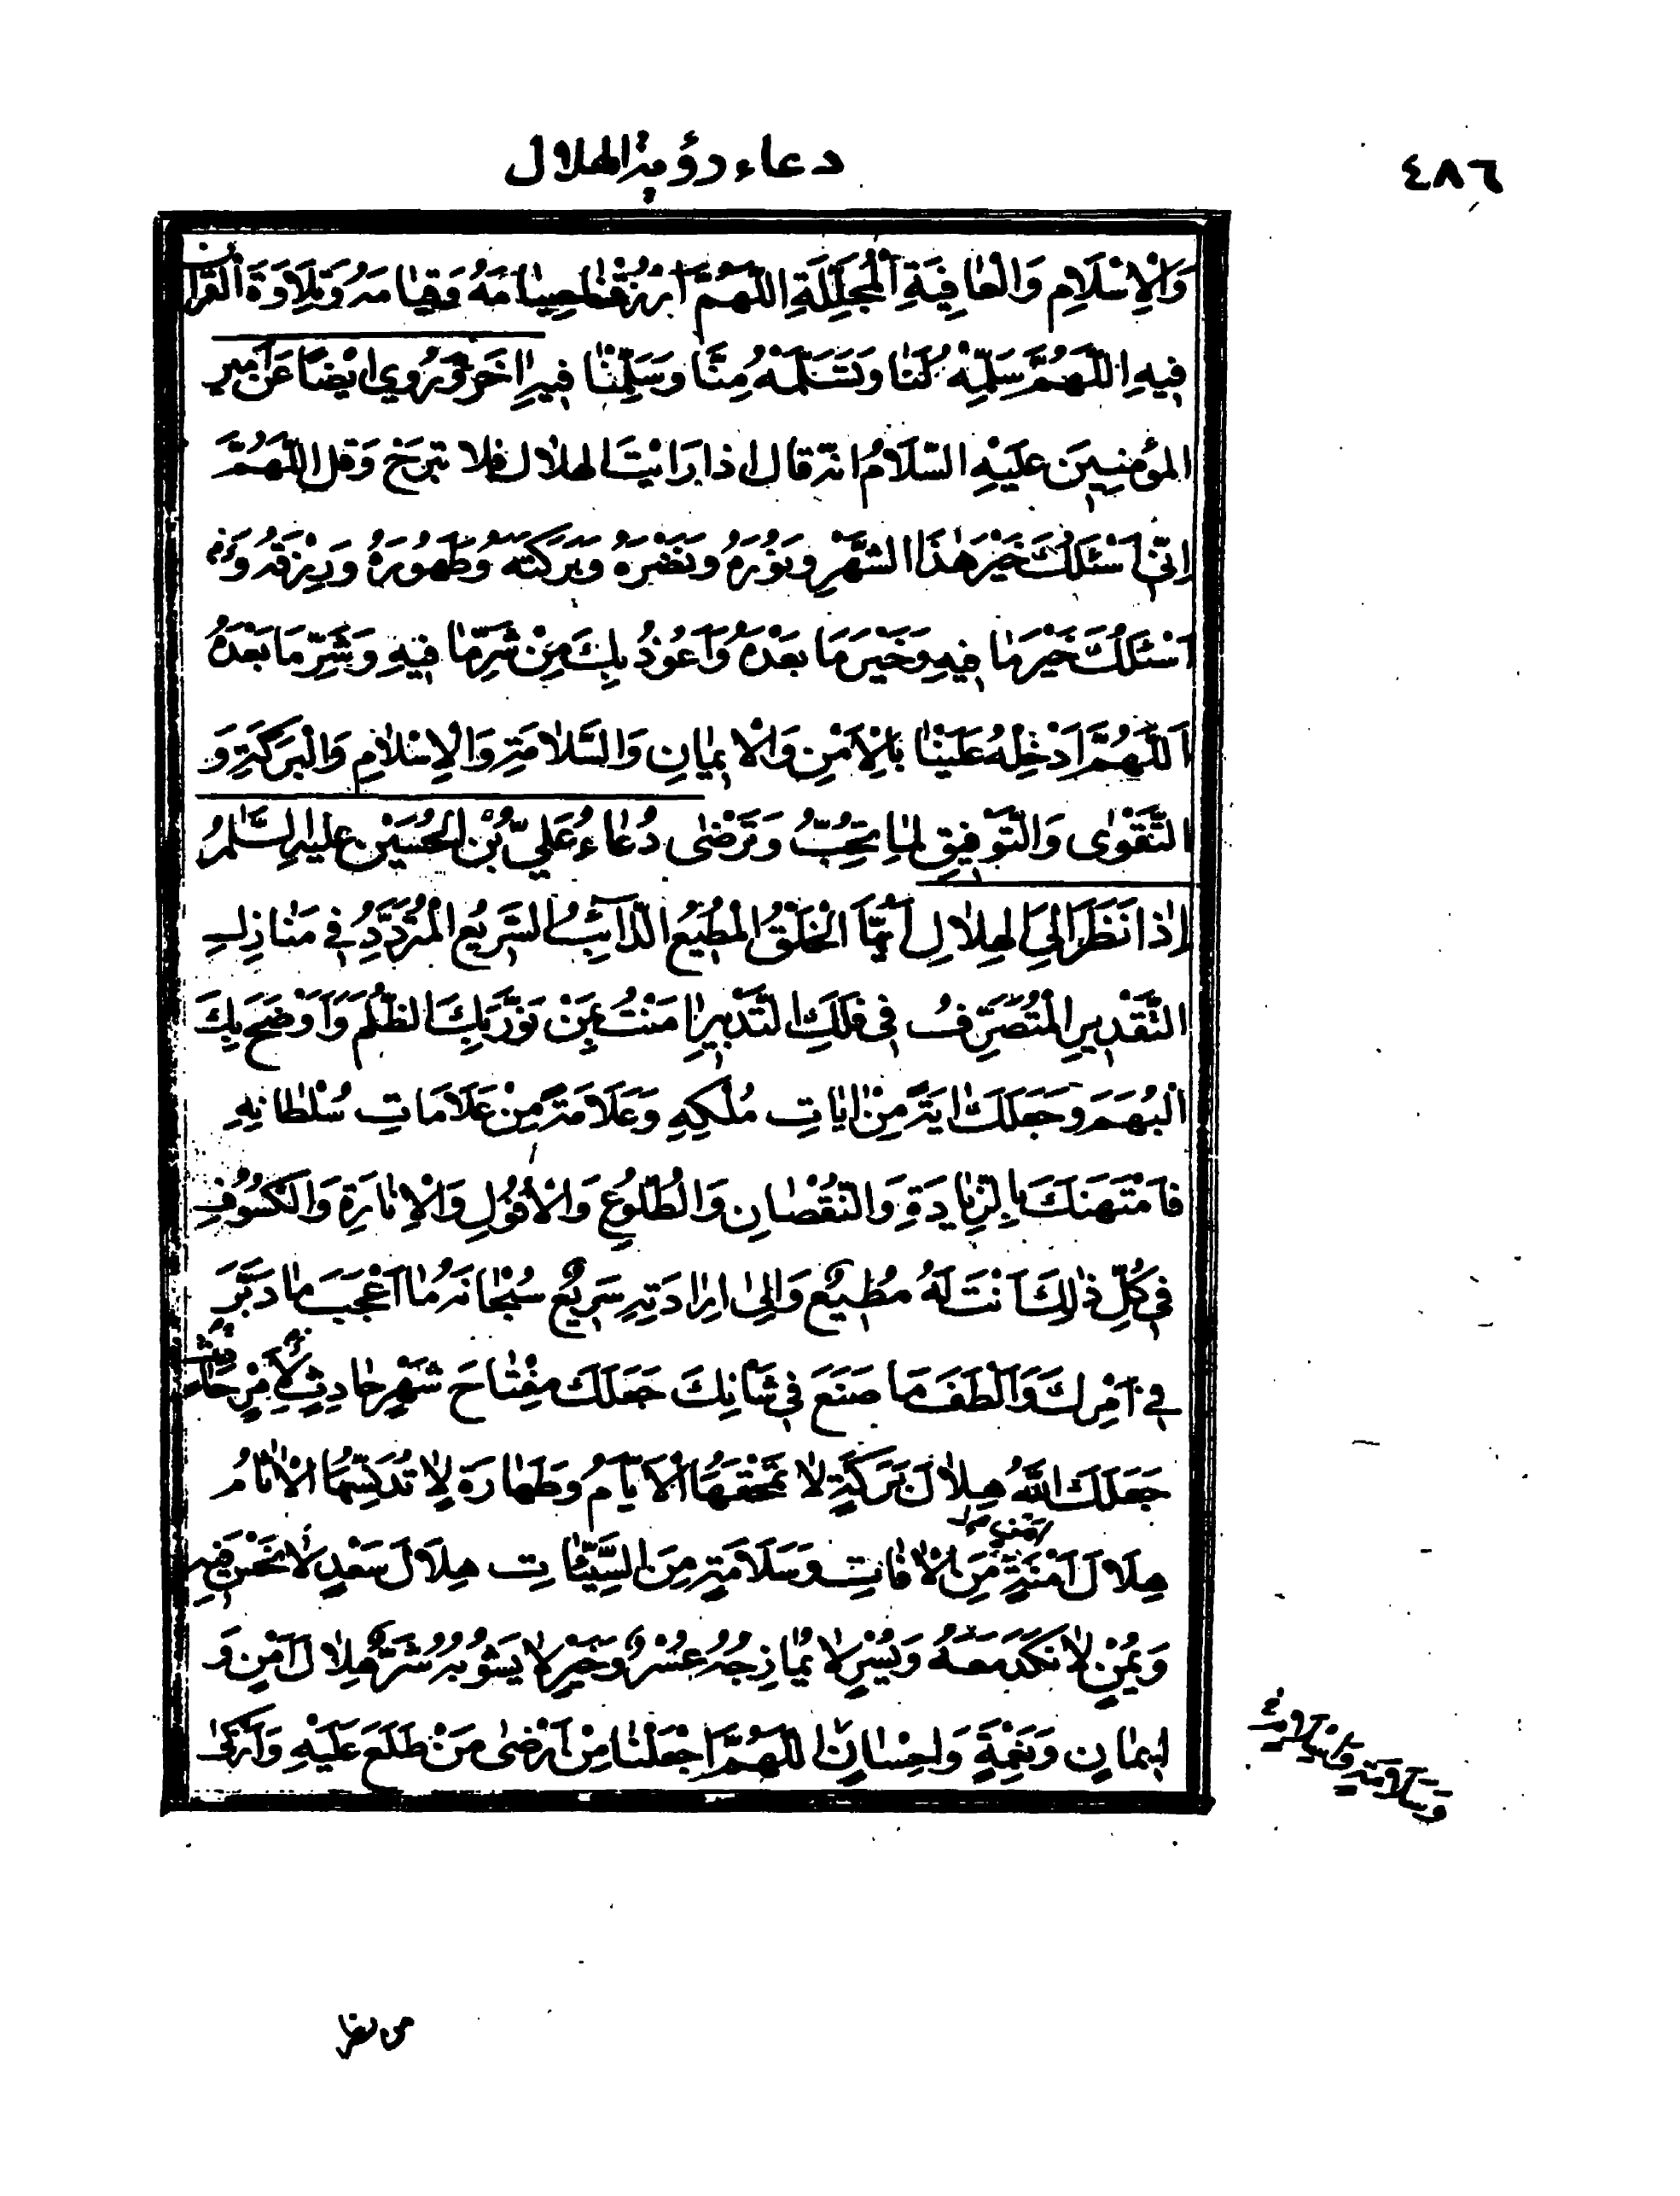 ٤٨٦
دعاء رؤية الهلال
وَالْإِسْلَامِ وَالْعَافِيَةِ الْمُجَلِّلَةِ اللَّهُمَّ ارْزُقْنَا صِيَامَهُ وَقِيَامَهُ وَتِلَاوَةَ الْقُرْآنِ
فِيهِ اللَّهُمَّ سَلِّمْهُ لَنَا وَتَسَلَّمْهُ مِنَّا وَسَلِّمْنَا فِيهِ اخَرُ وَرُوِيَ ايْضًا عَنْ أَمِيرِ
الْمُؤْمِنِينَ عَلَيْهِ السَّلَامُ انه قال اذا رَايْتَ الهلال فلا تبرَحْ وَقل اللَّهُمَّ
إِنِّي أَسْئَلُكَ خَيْرَ هٰذَا الشَّهْرِ وَنُورَهُ وَنَصْرَهُ وَبَرَكَتَهُ وَطَهُورَهُ وَرِزْقَهُ وَ
أَسْئَلُكَ خَيْرَ مَا فِيهِ وَخَيْرَ مَا بَعْدَهُ وَأَعُوذُ بِكَ مِنْ شَرِّ مَا فِيهِ وَشَرِّ مَا بَعْدَهُ
اَللَّهُمَّ اَدْخِلْهُ عَلَيْنَا بِالْأَمْنِ وَالْإِيمَانِ وَالسَّلَامَةِ وَالْإِسْلَامِ وَالْبَرَكَةِ وَ
التَّقْوٰى وَالتَّوْفِيقِ لِمَا تُحِبُّ وَتَرْضٰى دُعَاءُ عَلِيِّ بْنِ الْحُسَيْنِ عَلَيْهِ السَّلَامُ
إِذَا نَظَرَ إِلَى الْهِلَالِ أَيُّهَا الْخَلْقُ الْمُطِيعُ الدَّائِبُ السَّرِيعُ الْمُتَرَدِّدُ فِي مَنَازِلِ
التَّقْدِيرِ الْمُتَصَرِّفُ فِي فَلَكِ التَّدْبِيرِ اٰمَنْتُ بِمَنْ نَوَّرَ بِكَ الظُّلَمَ وَأَوْضَحَ بِكَ
الْبُهَمَ وَجَعَلَكَ اٰيَةً مِنْ اٰيَاتِ مُلْكِهِ وَعَلَامَةً مِنْ عَلَامَاتِ سُلْطَانِهِ
فَامْتَهَنَكَ بِالزِّيَادَةِ وَالنُّقْصَانِ وَالطُّلُوعِ وَالْأُفُولِ وَالْإِنَارَةِ وَالْكُسُوفِ
فِي كُلِّ ذٰلِكَ أَنْتَ لَهُ مُطِيعٌ وَإِلٰى إِرَادَتِهِ سَرِيعٌ سُبْحَانَهُ مَا أَعْجَبَ مَا دَبَّرَ
فِي أَمْرِكَ وَأَلْطَفَ مَا صَنَعَ فِي شَأْنِكَ جَعَلَكَ مِفْتَاحَ شَهْرٍ حَادِثٍ لِأَمْرٍ حَادِثٍ
جَعَلَكَ اللّٰهُ هِلَالَ بَرَكَةٍ لَا تَمْحَقُهَا الْأَيَّامُ وَطَهَارَةٍ لَا تُدَنِّسُهَا الْاٰثَامُ
هِلَالَ أَمْنَةٍ مِنَ الْاٰفَاتِ وَسَلَامَةٍ مِنَ السَّيِّئَاتِ هِلَالَ سَعْدٍ لَا نَحْسَ فِيهِ
وَيُمْنٍ لَا نَكَدَ مَعَهُ وَيُسْرٍ لَا يُمَازِجُهُ عُسْرٌ وَخَيْرٍ لَا يَشُوبُهُ شَرٌّ هِلَالَ أَمْنٍ وَ
إِيمَانٍ وَنِعْمَةٍ وَإِحْسَانٍ اللّٰهُمَّ اجْعَلْنَا مِنْ أَرْضٰى مَنْ طَلَعَ عَلَيْهِ وَأَزْكٰى
وَسَلَامَةٍ وَإِسْلَامٍ
من نظر